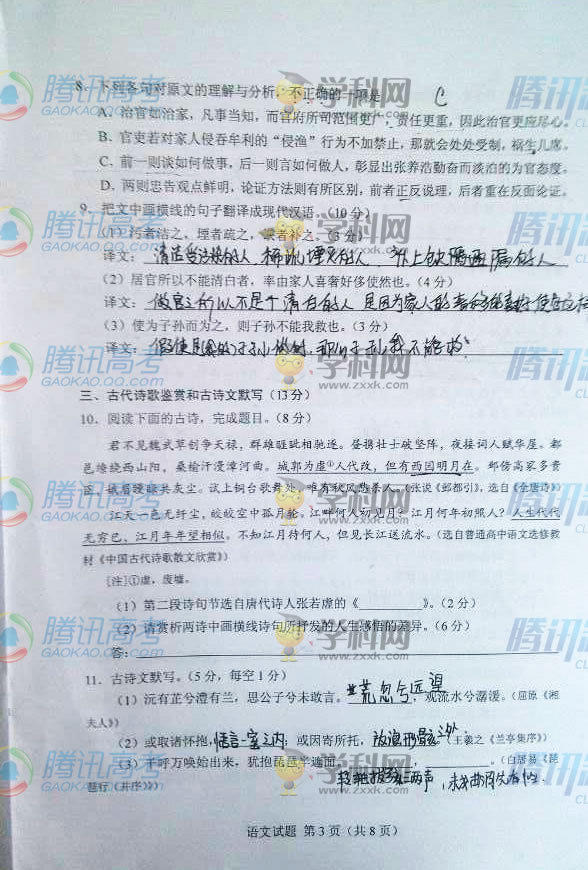 8、下列各句对原文的理解与分析，不正确的一项是 C
A、治官如治家，凡事当知，而官府所司范围更广，责任更重，因此治官更应尽心。
B、官吏若对家人侵吞牟利的“侵渔”行为不加禁止，那就会处处受制，祸生几席。
C、前一则谈如何做事，后一则言如何做人，彰显出张养浩勤奋而淡泊的为官态度。
D、两则忠告观点鲜明，论证方法则有所区别，前者正反说理，后者重在反面论证。
9、把文中画横线的句子翻译成现代汉语。（10分）
（1）污者洁之，堙者疏之，缺者补之。（3分）
译文：
（2）居官所以不能清白者，率由家人喜奢好侈使然也。（4分）
译文：做官之所以不是个清白的人 是因为家人的
（3）使为子孙而为之，则子孙不能我救也。（3分）
译文：假使是
三、古代诗歌鉴赏和古诗文默写（13分）
10、阅读下面的古诗，完成题目。（8分）
君不见魏武草创争天禄，群雄睚眦相驰逐。昼携壮士破坚阵，夜接词人赋华屋。都
邑缭绕西山阳，桑榆汗漫漳河曲。城郭为虚①人代改，但有西园明月在。邺傍高冢多贵
臣，娥眉曼睩共灰尘。试上铜台歌舞处，唯有秋风愁杀人。（张说《邺都引》，选自《全唐诗》）
江天一色无纤尘，皎皎空中孤月轮。江畔何人初见月？江月何年初照人？人生代代
无穷已，江月年年望相似。不知江月待何人，但见长江送流水。（选自普通高中语文选修教
材《中国古代诗歌散文欣赏》）
[注]①虚，废墟。
（1）第二段诗句节选自唐代诗人张若虚的《 》。（2分）
（2）请赏析两诗中画横线诗句所抒发的人生感悟的差异。（6分）
答：
11、古诗文默写。（5分，每空1分）
（1）沅有芷兮澧有兰，思公子兮未敢言。荒忽兮远望，观流水兮潺湲。（屈原《湘
夫人》）
（2）或取诸怀抱，悟言一室之内；或因寄所托，放浪形骸之外。（王羲之《兰亭集序》）
（3）千呼万唤始出来，犹抱琵琶半遮面。 ， 。（白居易《琵
转轴拨弦三两声，未成曲调先有情
琶行（并序）》）
语文试题 第3页（共8页）
腾讯高考
GAOKAO.QQ.COM
学科网
www.zxxk.com